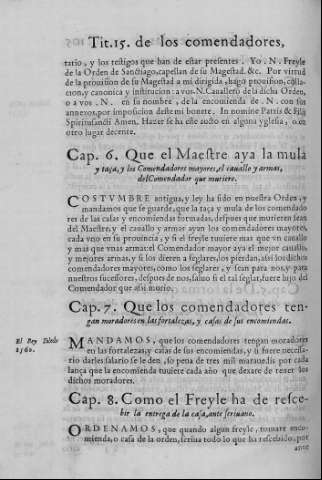 Tit.15. de los comendadores,
tario, y los testigos que han de estar presentes. Yo. N. Freyle
de la Orden de Sanctiago, capellan de su Magestad. &c. Por virtud
de la prouision de su Magestad a mi dirigida, hago prouision, colla-
cion, y canonica y institucion: a vos. N. Cauallero de la dicha Orden,
o a vos. N. en su nombre, de la encomienda de. N. con sus
annexos, por imposicion deste mi bonete. In nomine Patris & Filij
Spiritussancti Amen. Hazer se ha este aucto en alguna yglesia, o en
otro lugar decente.
Cap. 6. Que el Maestre aya la mula
y taça, y los Comendadores mayores, el cauallo y armas,
del Comendador que muriere.
COSTVMBRE antigua, y ley ha sido en nuestra Orden, y
mandamos que se guarde, que la taça y mula de los comendado
res de las casas y encomiendas formadas, despues que murieren sean
del Maestre, y el cauallo y armas ayan los comendadores mayores,
cada vno en su prouincia, y si el freyle tuuiere mas que vn cauallo
y mas que vnas armas: el Comendador mayor aya el mejor cauallo,
y mejores armas, y si los dieren a seglares, los pierdan, assi los dichos
comendadores mayores, como los seglares, y sean para nos, y para
nuestros sucessores, despues de nos, saluo si el tal seglar, fuere hijo del
Comendador que assi murio.
Cap. 7. Que los comendadores ten-
gan moradores en las fortalezas, y casas de sus encomiendas.
El Rey Toledo
1560.
MANDAMOS, que los comendadores tengan moradores
en las fortalezas, y casas de sus encomiendas, y si fuere necessa-
rio darles salario se le den, so pena de tres mil marauedis por cada
lança que la encomienda tuuiere cada año que dexare de tener los
dichos moradores.
Cap. 8. Como el Freyle ha deresce-
bir la entrega de la casa, ante scriuano.
ORDENAMOS, que quando algun freyle, tomare enco-
mienda, o casa de la orden, scriua todo lo que ha rescebido, por
ante